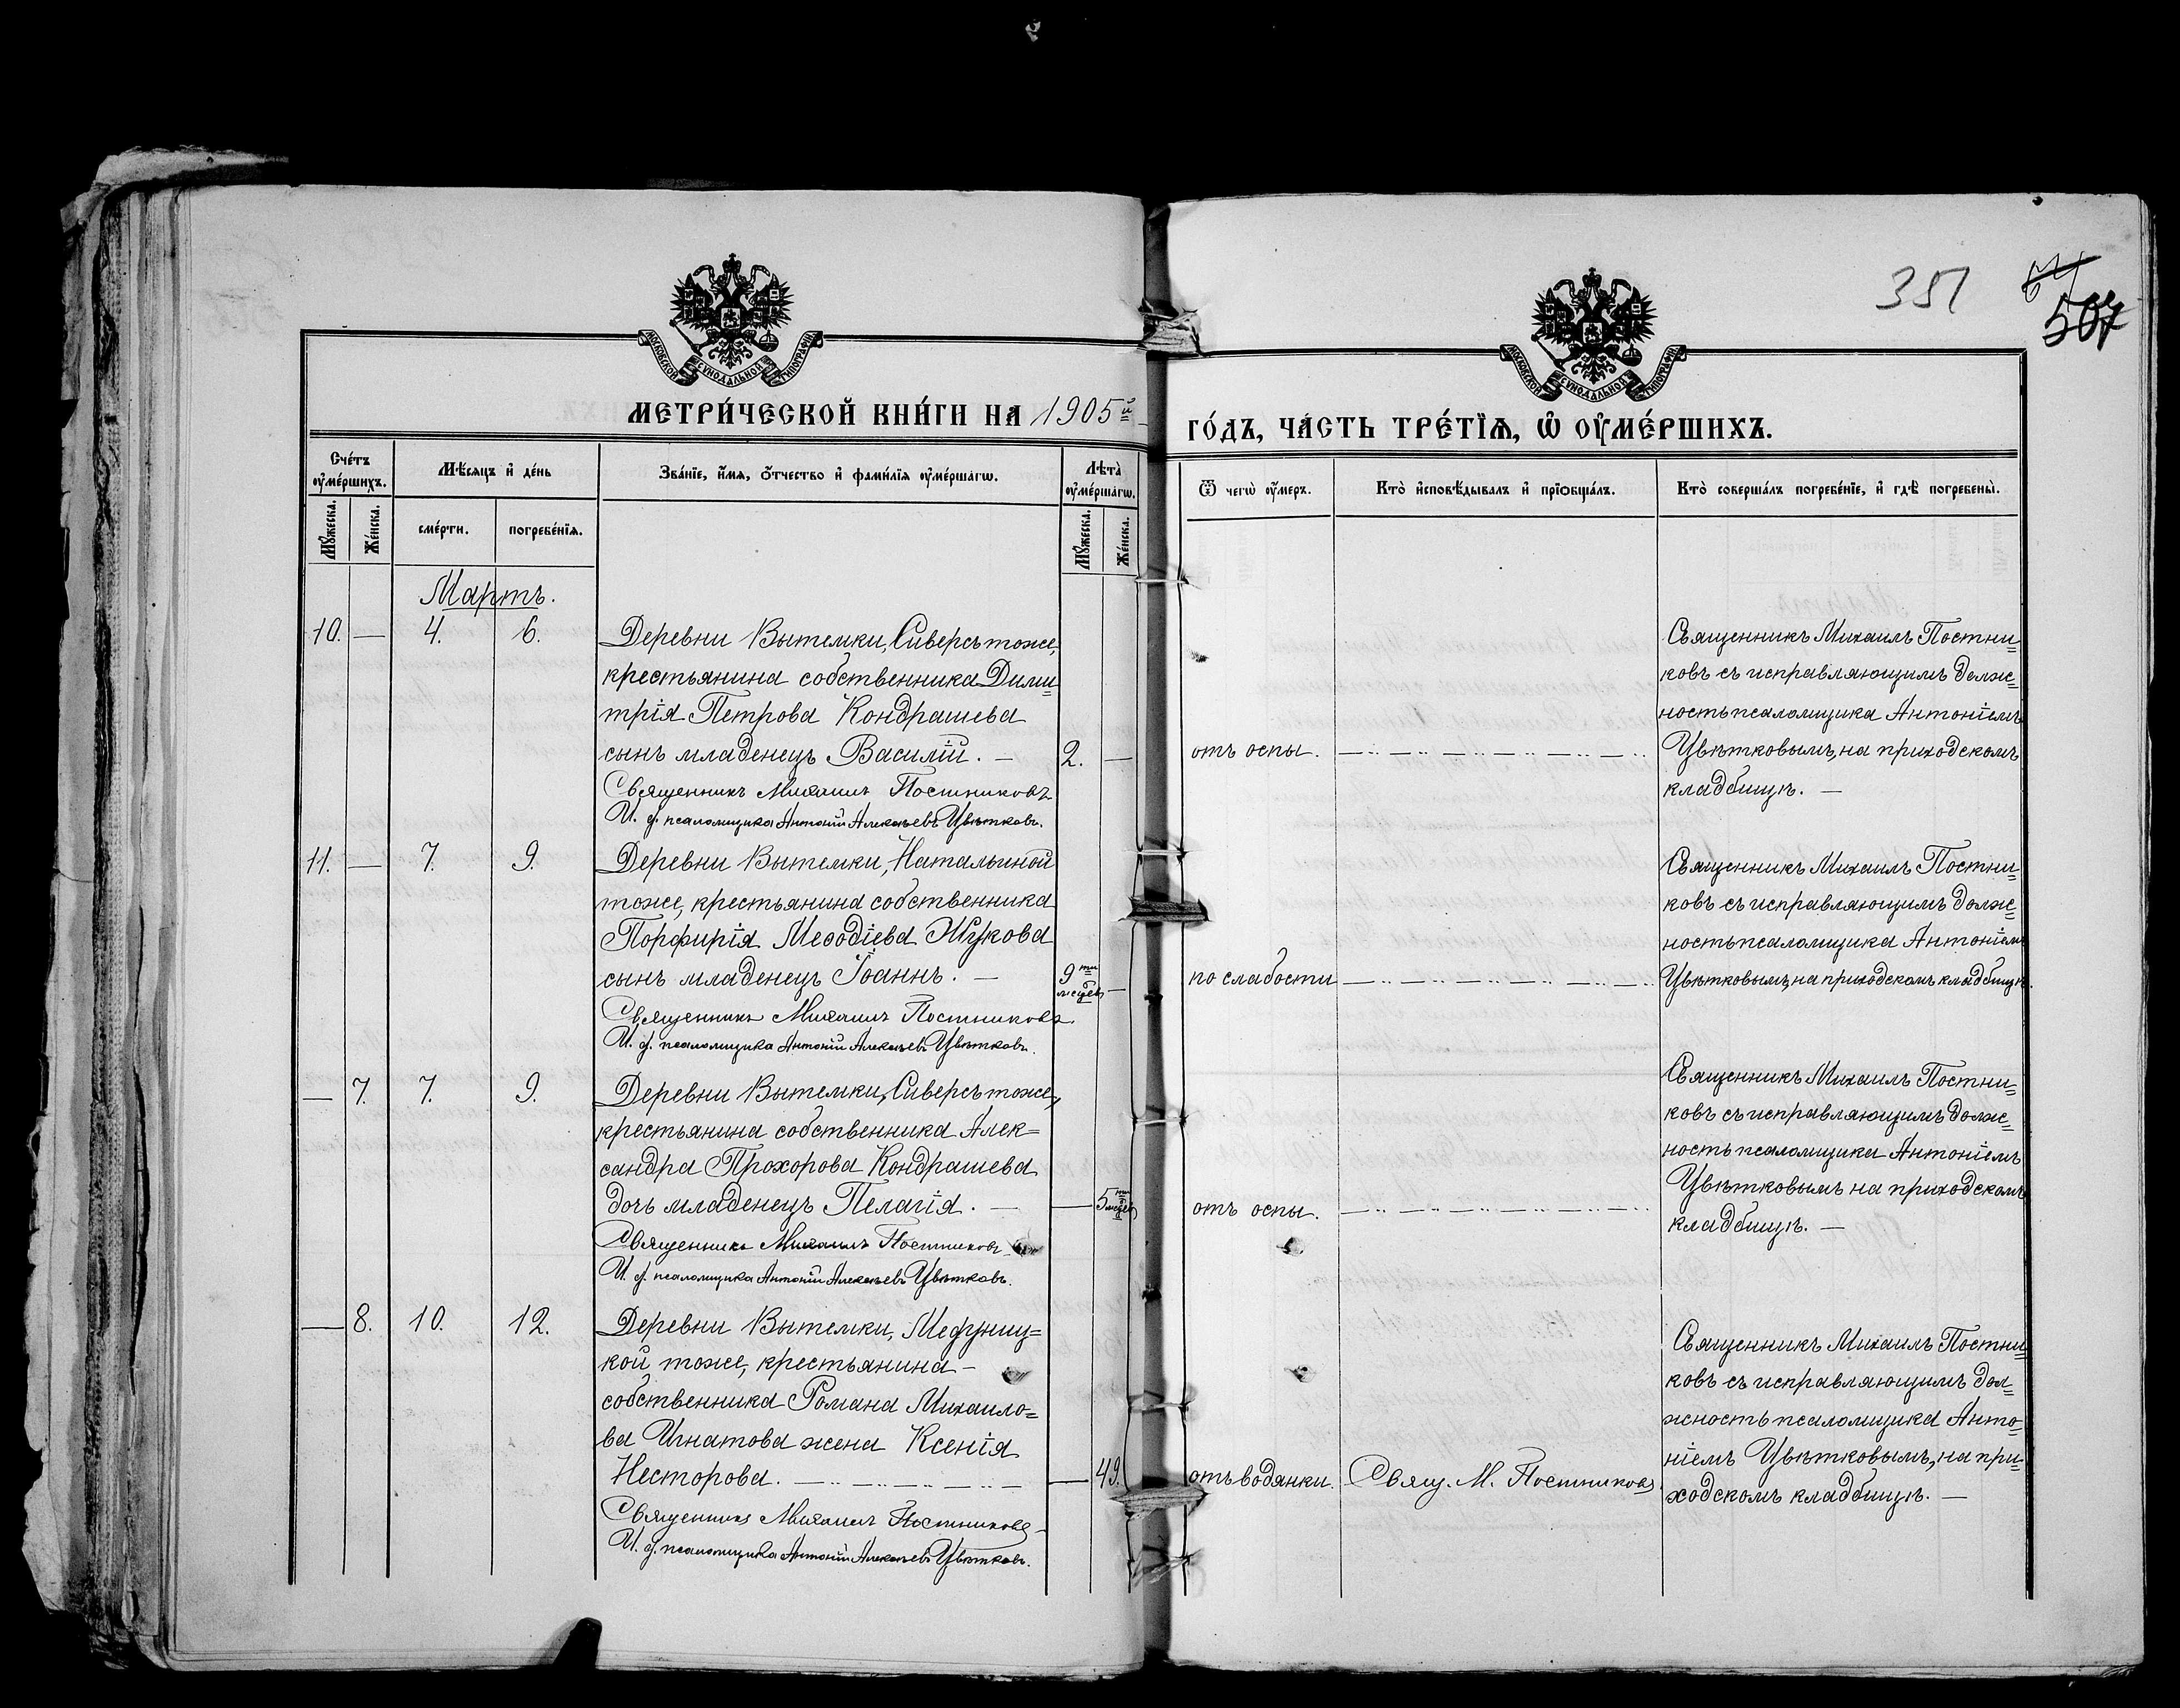 351
507
МОСКОВСКОЙ СѴНОДАЛЬНОЙ ТИПОГРАФІИ
МОСКОВСКОЙ СѴНОДАЛЬНОЙ ТИПОГРАФІИ
МЕТРИ́ЧЕСКОЙ КНИ́ГИ НА 1905й
ГО́ДЪ, ЧА́СТЬ ТРЕ́ТІѦ, Ѡ҆ ОУ҆МЕ́РШИХЪ.
Сче́тъ оу҆ме́ршихъ.
Мꙋ́жеска.
Же́нска.
Мѣ́сѧцъ и҆ де́нь
сме́рти.
погребе́нїѧ.
Зва́нїе, и҆́мѧ, ѻ҆́тчество и҆ фами́лїѧ оу҆ме́ршагѡ.
Лѣ́та оу҆ме́ршагѡ.
Мꙋ́жеска.
Же́нска.
Ѿ чегѡ̀ оу҆́меръ.
Кто̀ и҆сповѣ́дывалъ и҆ прїѡбща́лъ.
Кто̀ соверша́лъ погребе́нїе, и҆ гдѣ̀ погребены̀.
Мартъ.
10. — 4. 6.
Деревни Вытемки, Сиверсъ тоже,
крестьянина собственника Дими=
трія Петрова Кондрашева
сынъ младенецъ Василій. — 2. —
Священникъ Михаилъ Постниковъ
И. д. псаломщика Антоній Алексѣевъ Цвѣтковъ.
отъ оспы.
Священникъ Михаилъ Постни=
ковъ съ исправляющимъ долж=
ность псаломщика Антоніемъ
Цвѣтковымъ, на приходскомъ
кладбищѣ. —
11. — 7. 9.
Деревни Вытемки, Натальиной
тоже, крестьянина собственника
Порфирія Меѳодіева Жукова
сынъ младенецъ Іоаннъ. — 9ти мсцевъ —
Священникъ Михаилъ Постниковъ.
И. д. псаломщика Антоній Алексѣевъ Цвѣтковъ.
по слабости
Священникъ Михаилъ Постни=
ковъ съ исправляющимъ долж=
ность псаломщика Антоніемъ
Цвѣтковымъ, на приходскомъ кладбищѣ.
— 7. 7. 9.
Деревни Вытемки, Сиверсъ тоже,
крестьянина собственника Алек=
сандра Прохорова Кондрашева
дочь младенецъ Пелагія. — — 5ти мсцевъ
Священникъ Михаилъ Постниковъ
И. д. псаломщика Антоній Алексѣевъ Цвѣтковъ.
отъ оспы.
Священникъ Михаилъ Постни=
ковъ съ исправляющимъ долж=
ность псаломщика Антоніемъ
Цвѣтковымъ на приходскомъ
кладбищѣ. —
— 8. 10. 12.
Деревни Вытемки,
кой тоже, крестьянина –
собственника Романа Михаило=
ва Игнатова жена Ксенія
Несторова. — 49.
Священникъ Михаилъ Постниковъ
И. д. псаломщика Антоній Алексѣевъ Цвѣтковъ.
отъ водянки.
Свящ. М. Постниковъ
Священникъ Михаилъ Постни=
ковъ съ исправляющимъ дол=
жность псаломщика Анто=
ніемъ Цвѣтковымъ, на при=
ходскомъ кладбищѣ. —